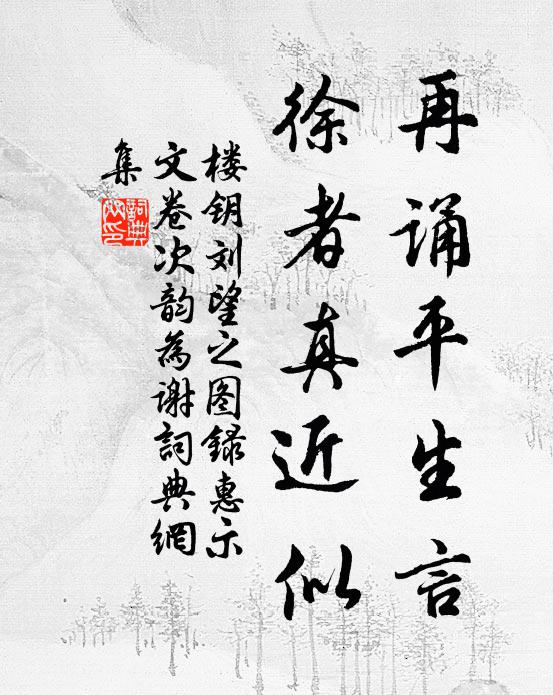 再诵平生言
徐者真近似
楼钥刘望之图録惠示
文卷次韵為谢詞典網
集